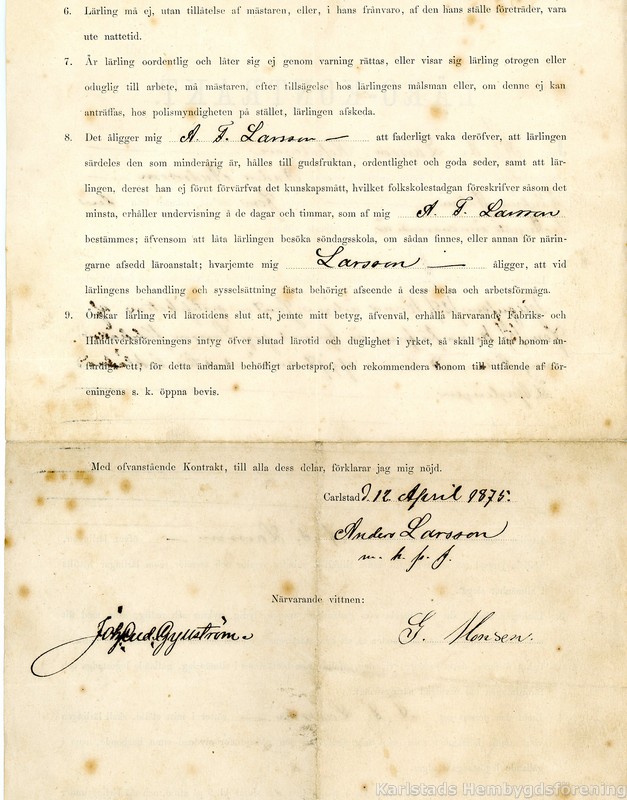 6. Lärling må ej, utan tillåtelse af mästaren, eller, i hans frånvaro, af den hans ställe företräder, vara
ute nattetid.
7. Är lärling oordentlig och låter sig ej genom varning rättas, eller visar sig lärling otrogen eller
oduglig till arbete, må mästaren, efter tillsägelse hos lärlingens målsman eller, om denne ej kan
anträffas, hos polismyndigheten på stället, lärlingen afskeda.
8. Det åligger mig A. F. Larsson — att faderligt vaka deröfver, att lärlingen
särdeles den som minderårig är, hålles till gudsfruktan, ordentlighet och goda seder, samt att lär-
lingen, derest han ej förut förvärfvat det kunskapsmått, hvilket folkskolestadgan föreskrifver såsom det
minsta, erhåller undervisning å de dagar och timmar, som af mig A. F. Larsson
bestämmes; äfvensom att låta lärlingen besöka söndagsskola, om sådan finnes, eller annan för närin-
garne afsedd läroanstalt; hvarjemte mig Larsson — åligger, att vid
lärlingens behandling och sysselsättning fästa behörigt afseende å dess helsa och arbetsförmåga.
9. Önskar lärling vid lärotidens slut att, jemte mitt betyg, äfvenväl, erhålla härvarande Fabriks- och
Handtverksföreningens intyg öfver slutad lärotid och duglighet i yrket, så skall jag låta honom än-
färdiga ett, för detta ändamål behöfligt arbetsprof, och rekommendera honom till utfående af för-
eningens s. k. öppna bevis.
Med ofvanstående Kontrakt, till alla dess delar, förklarar jag mig nöjd.
Carlstad d. 12 April 1875.
Anders Larsson
m. h. p. p.
Närvarande vittnen:
Gyllström
G. Monsen.
Karlstads Hembygdsförening